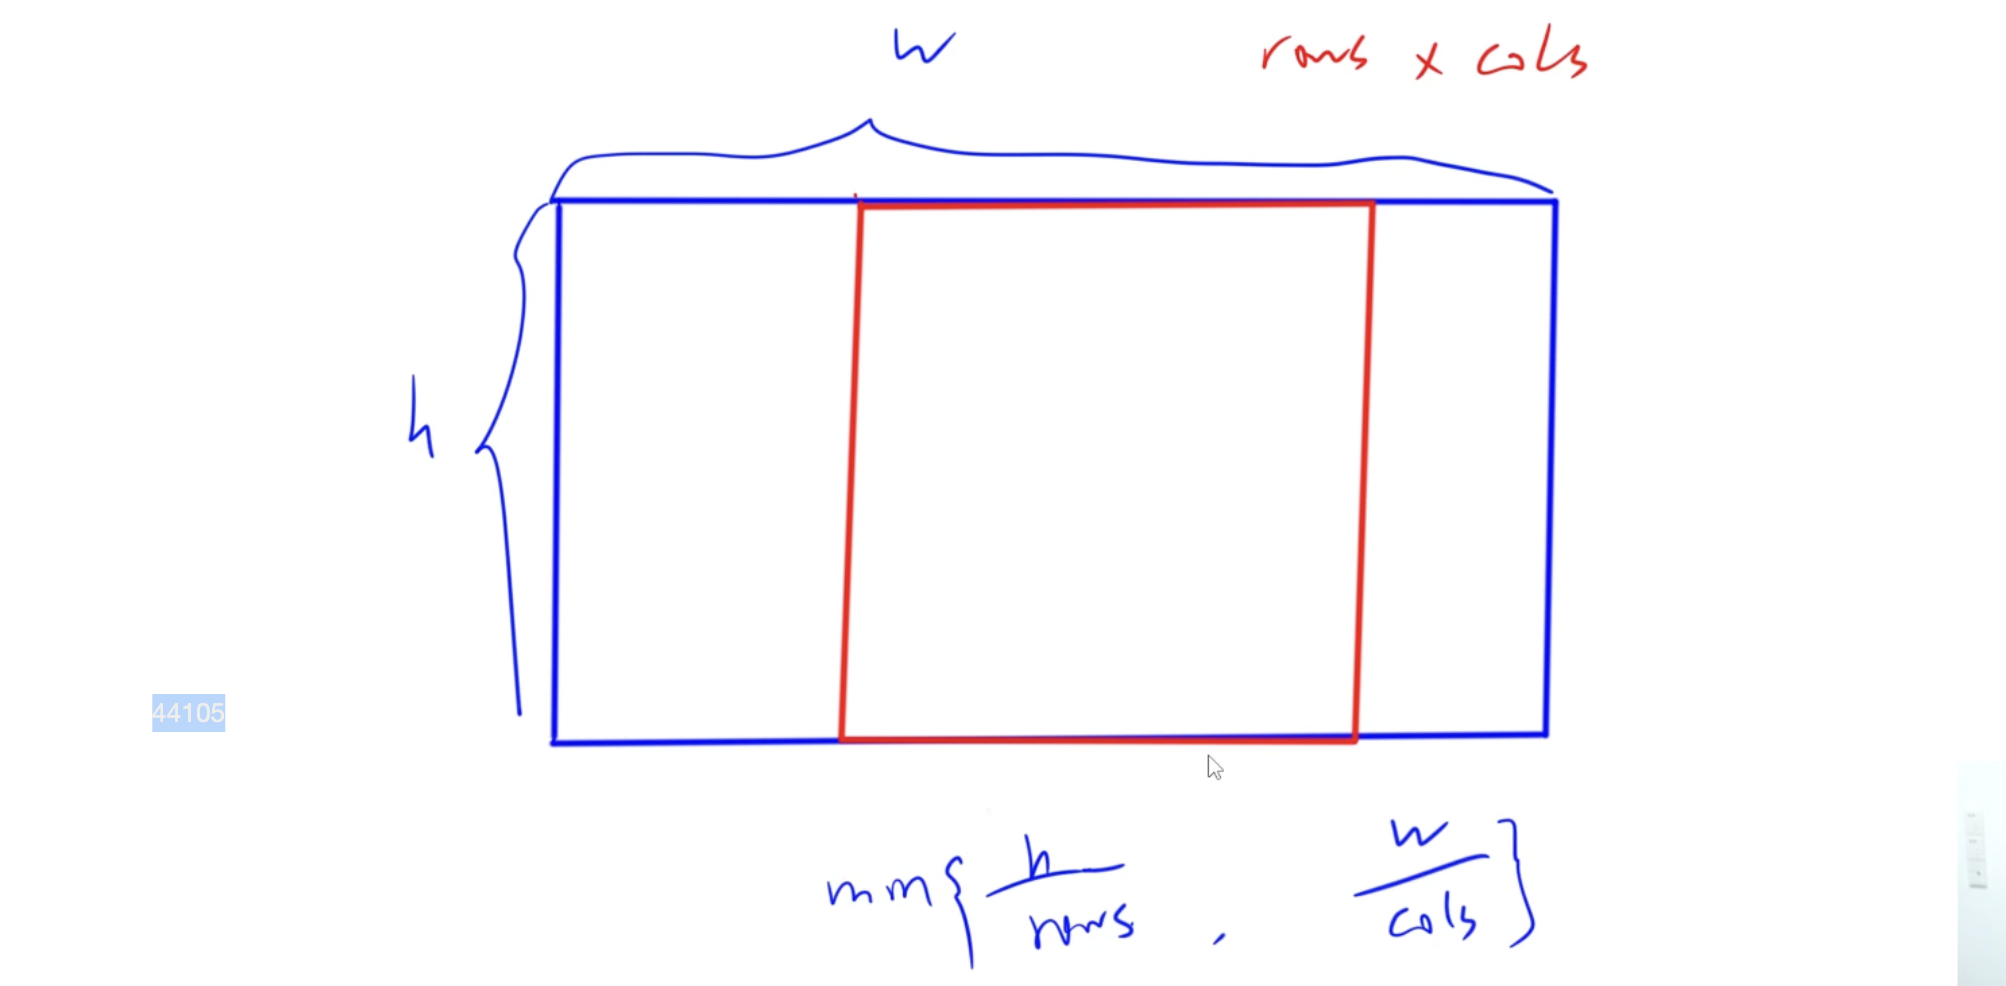 w
rows x cols
h
44105
min{ h/rows , w/cols }